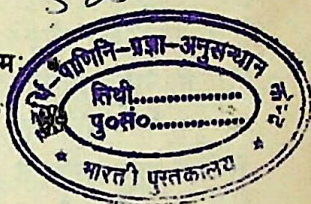 म:
र्षि-पाणिनि-प्रज्ञा-अनुसन्धान
तिथी..................
पु०सं०..................
* भारती पुस्तकालय *